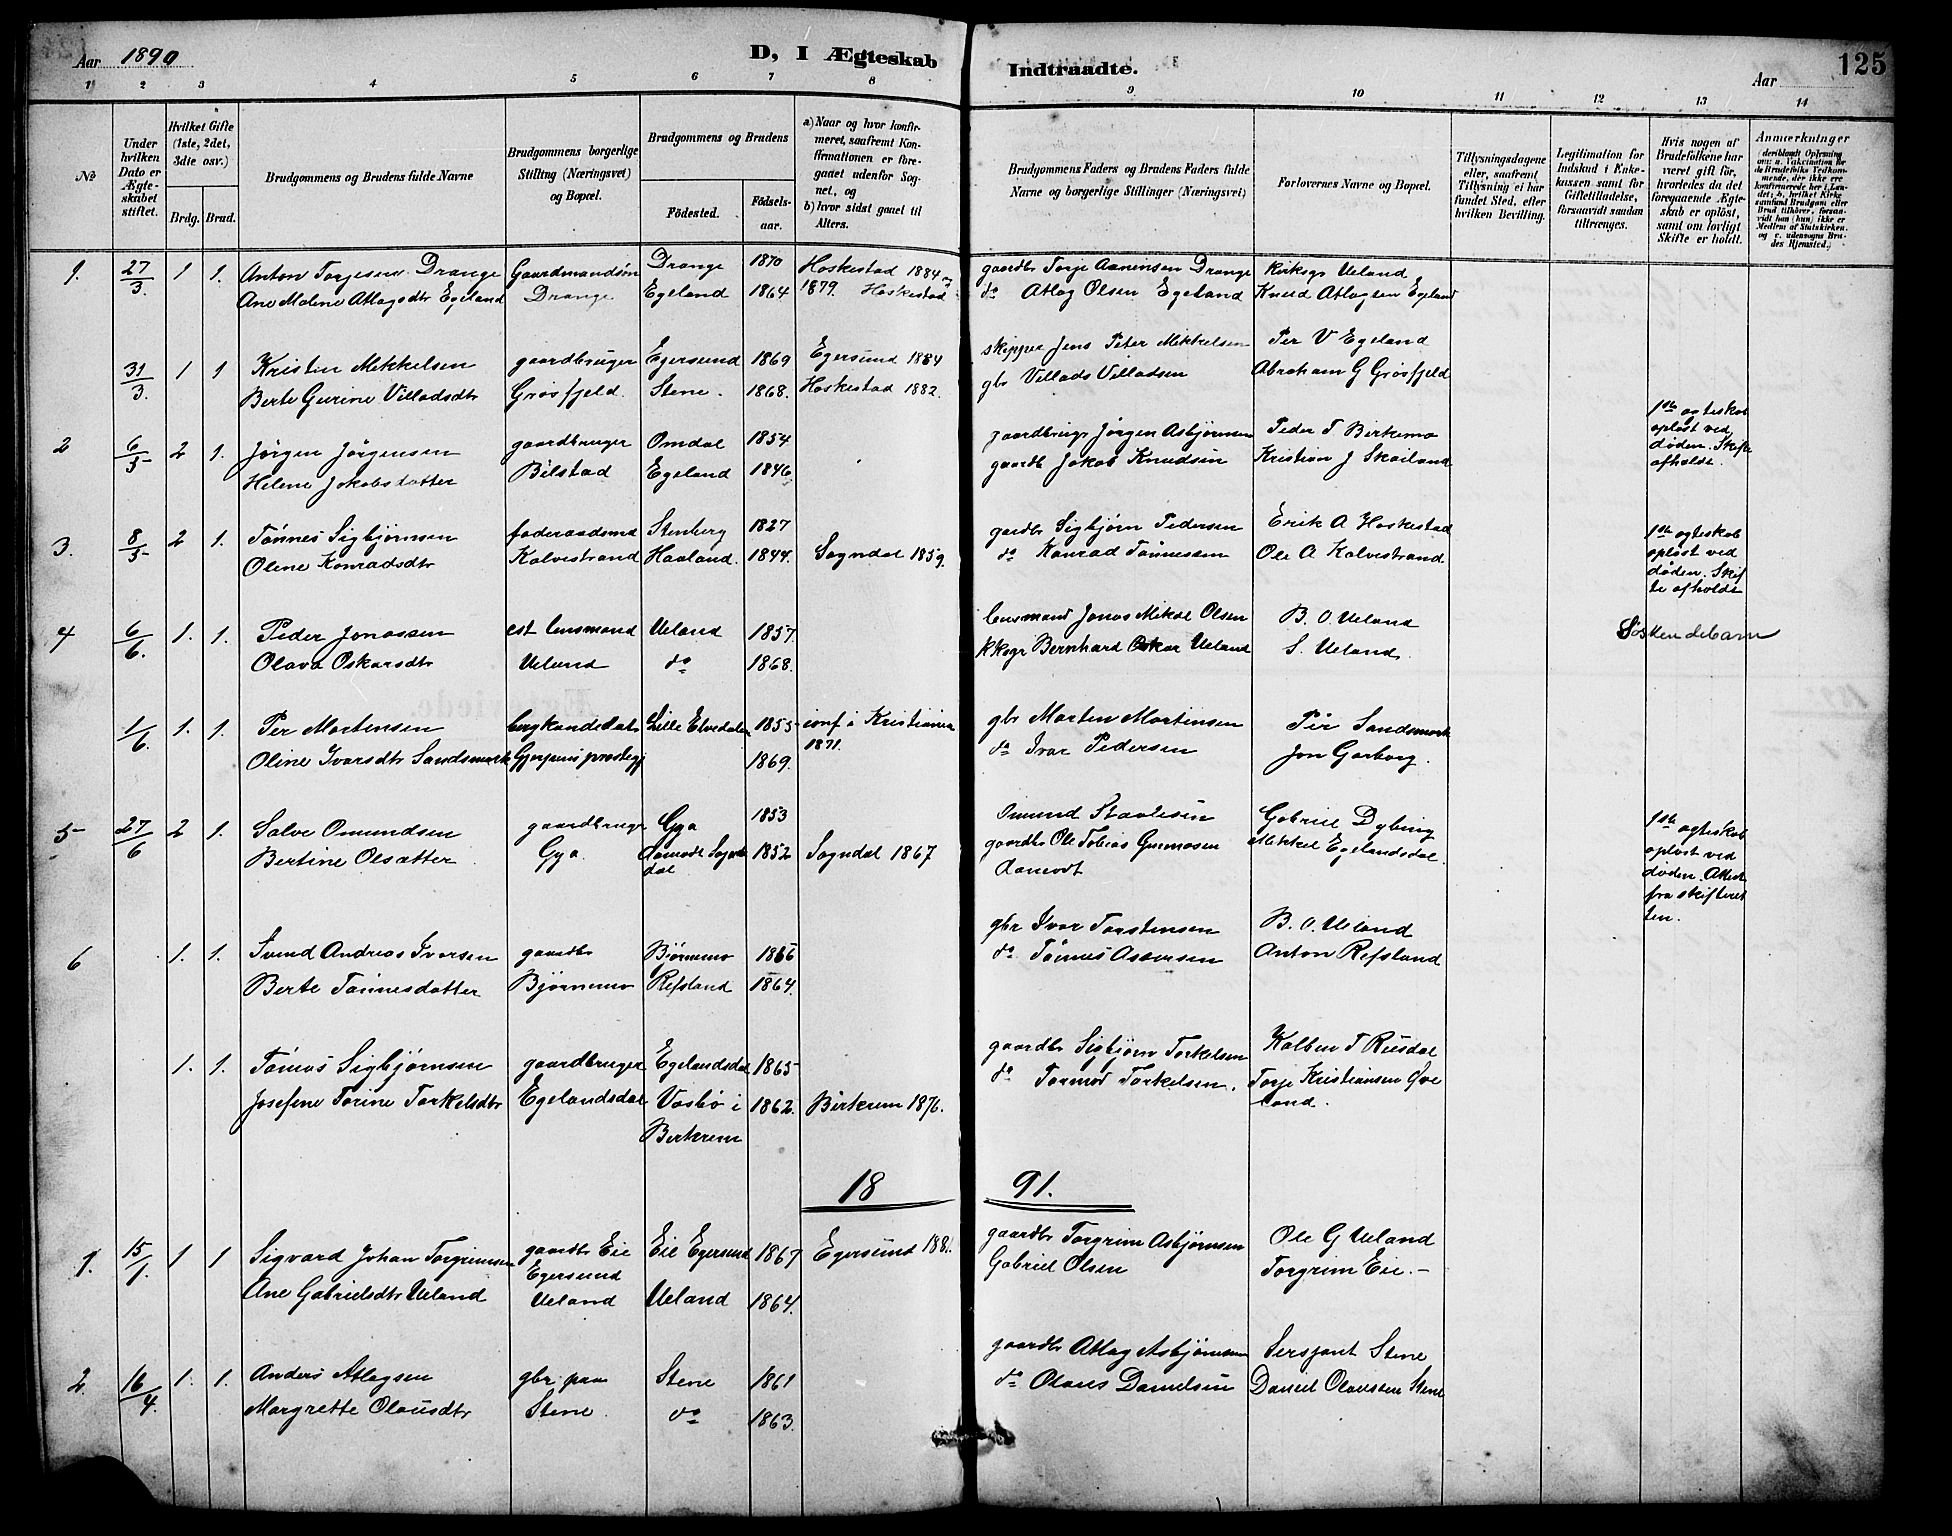 Aar 1890
D, I Ægteskab Indtraadte.
Aar
125
1 2 3 4 5 6 7 8 9 10 11 12 13 14
No
Under hvilken Dato er Ægteskabet stiftet.
Hvilket Gifte (1ste, 2det, 3die osv.)
Brdg. Brud.
Brudgommens og Brudens fulde Navne
Brudgommens borgerlige Stilling (Næringsvei) og Bopæl.
Brudgommens og Brudens
Födested.
Födsels-aar.
a) Naar og hvor konfirmeret, saafremt Konfirmationen er foregaaet udenfor Sognet, og
b) hvor sidst gaaet til Alters.
Brudgommens Faders og Brudens Faders fulde Navne og borgerlige Stillinger (Næringsvei)
Forlovernes Navne og Bopæl.
Tillysningsdagene eller, saafremt Tillysning ei har fundet Sted, efter hvilken Bevilling.
Legitimation for Indskud i Enkekassen samt for Giftetilladelse, forsaavidt saadan tiltrænges.
Hvis nogen af Brudefolkene har været gift før, hvorledes da det foregaaende Ægteskab er oplöst, samt om lovligt Skifte er holdt.
Anmærkninger
1. 27/3. 1 1. Anton Torjesen Drange Gaardmandsön Drange 1870 Hoskestad 1884 og gaardbr Torje Aanensen Drange Kirksgr Ueland
Ane Malene Atlagsdtr Egeland Drange Egeland 1864 1879. Hoskestad do Atlag Olsen Egeland Knud Atlagsen Egeland
31/3. 1 1 Kristen Mikkelsen gaardbruger Egersund 1869 Egersund 1884 skipper Jens Peter Mikkelsen Per V Egeland
Berte Gurine Villadsdtr Grøsfjeld. Stene. 1868. Hoskestad 1882. gbr Villads Villadsen Abraham G Grøsfjeld
2 6/5 2 1. Jørgen Jørgensen gaardbruger Omdal 1854 gaardbrugr Jørgen Asbjørnsen Peder T Birkemo
Helene Jakobsdatter Bilstad Egeland 1846 gaardb Jakob Knudsen Kristian J Skailand
1ste ægteskab opløst ved døden. Skifte afholdt.
3. 8/5 2 1. Tönnes Sigbjørnsen føderaadsmd Stenberg 1827 gardbr Sigbjørn Pedersen Erik A Hoskestad
Oline Konradsdtr Kalvestrand Haaland. 1844. Sogndal 1859. do Konrad Tønnessen Ole A Kalvestrand
1ste ægteskab opløst ved døden. Skifte afholdt
4 6/6. 1. 1. Peder Jonassen cst lensmand Ueland 1857. lensmand Jonas Mikal Olsen B. O. Ueland
Olava Oskarsdtr Ueland do 1868. Kksgr Bernhard Oskar Ueland S. Ueland.
Søskendebarn
1/6. 1. 1. Per Mortensen bergkandidat Lille Elvedalen 1855 conf i Kristiania 1871. gbr Morten Mortensen Per Sandsmark
Oline Ivarsdtr Sandsmark Gjerpens prestegj 1869. do Ivar Pedersen Jon Garborg.
5 27/6 2 1. Salve Omundsen gaardbruger Gya 1853 Omund Staalesen Gabriel Dybing
Bertine Olsdtter Gya. Aamodt Sogndal 1852 Sogndal 1867 gaardbr Ole Tobias Gunnasen Aamodt Mikkel Egelandsdal.
1ste ægteskab opløst ved døden. Attest fra skifteretten.
6 1. 1. Svend Andreas Iversen gaardbr Björnemo 1866 gbr Ivar Torstensen B. O. Ueland
Berte Tönnesdatter Bjørnemo Refsland 1864. do Tönnes Assersen Anton Refsland
1. 1. Tönnes Sigbjørnsen gaardbruger Egelandsdal 1865 gaardbr Sigbjørn Torkelsen Kolben T Rusdal
Josefine Torine Torkelsdtr Egelandsdal Vasbø i Berkrem 1862. Birkrem 1876. do Tormod Torkelsen. Torje Kristiansen Øveland.
18 91.
1. 15/1. 1 1 Sigvard Johan Torgrimsen gaardbr Eie Egersund Eie Egersund 1867 Egersund 188 gaardbr Torgrim Asbjørnsen Ole G Ueland
Ane Gabrielsdtr Ueland Ueland Ueland 1864. Gabriel Olsen Torgrim Eie. –
2. 16/4. 1. 1. Anders Atlagsen gbr paa Stene 1861 gaardbr Atlag Asbjørnsen Sersjant Stene
Margrette Olausdtr Stene. do 1863. do Olaus Danielsen Daniel Olaussen Stene